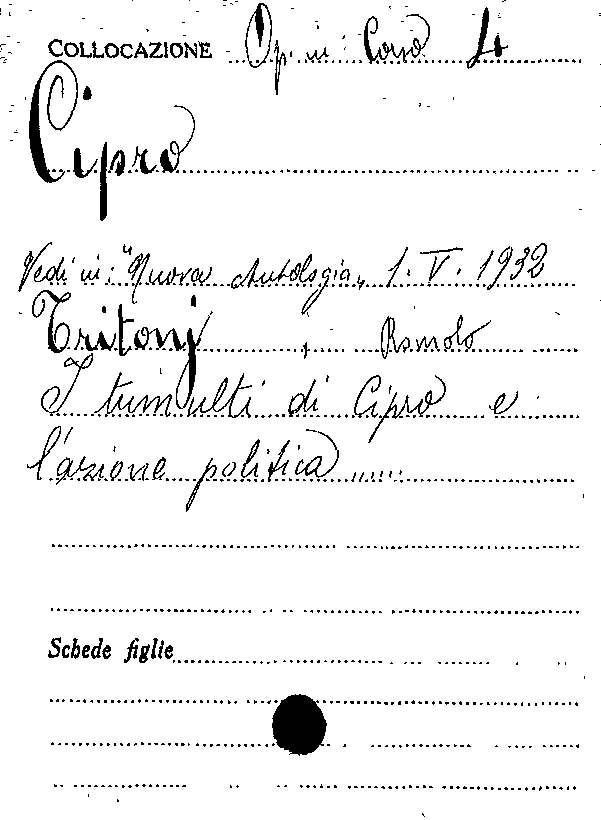 COLLOCAZIONE Op. in: Corso 4
Cipro
Vedi in: "Nuova Antologia„ 1. V. 1932
Tritonj, Romolo
I tumulti di Cipro e
l'azione politica .....
Schede figlie